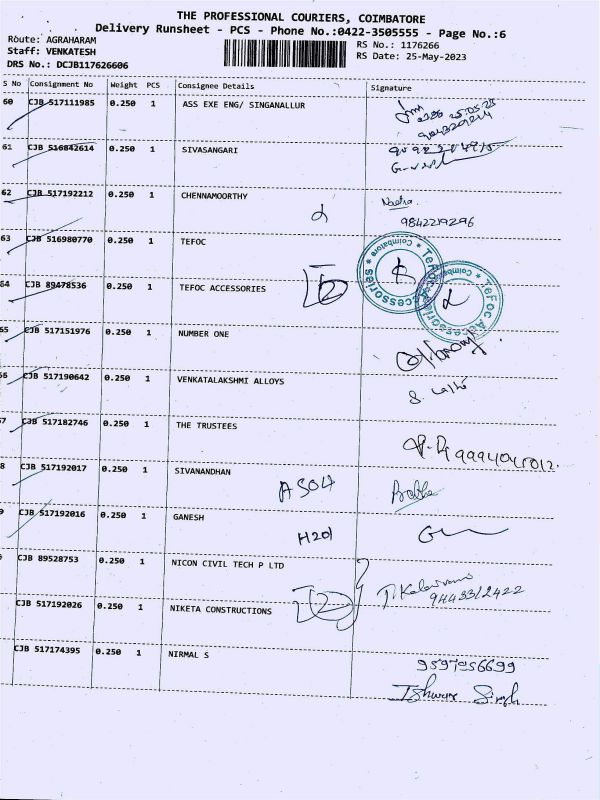 THE PROFESSIONAL COURIERS, COIMBATORE
Delivery Runsheet - PCS - Phone No.:0422-3505555 - Page No.:6
Route: AGRAHARAM
Staff: VENKATESH
DRS No.: DCJB117626606
RS No.: 1176266
RS Date: 25-May-2023
S No Consignment No Weight PCS Consignee Details Signature
60 CJB 517111985 0.250 1 ASS EXE ENG/ SINGANALLUR
61 CJB 516842614 0.250 1 SIVASANGARI
62 CJB 517192212 0.250 1 CHENNAMOORTHY
9842219296
63 CJB 516980770 0.250 1 TEFOC
TeFoc Accessories * Coimbatore *
64 CJB 89478536 0.250 1 TEFOC ACCESSORIES 2
TeFoc Accessories * Coimbatore
65 CJB 517151976 0.250 1 NUMBER ONE
66 CJB 517190642 0.250 1 VENKATALAKSHMI ALLOYS
7 CJB 517182746 0.250 1 THE TRUSTEES
8 CJB 517192017 0.250 1 SIVANANDHAN A 504
9 CJB 517192016 0.250 1 GANESH H201
CJB 89528753 0.250 1 NICON CIVIL TECH P LTD
CJB 517192026 0.250 1 NIKETA CONSTRUCTIONS 2
CJB 517174395 0.250 1 NIRMAL S
9597956699
Ishwar Singh